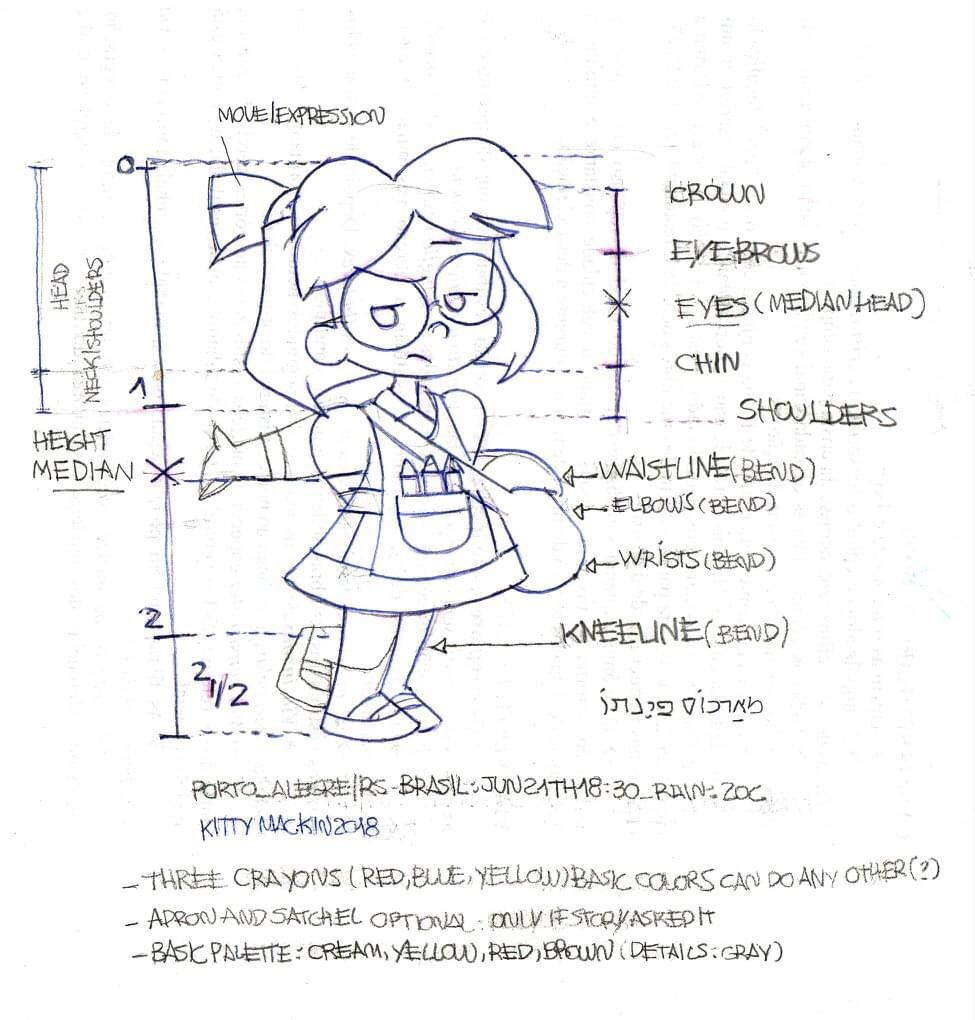 MOVE/EXPRESSION
0
CROWN
EYEBROWS
HEAD
NECK/SHOULDERS
EYES (MEDIAN HEAD)
CHIN
1
SHOULDERS
HEIGHT
MEDIAN
WAISTLINE (BEND)
ELBOWS (BEND)
WRISTS (BEND)
2
KNEELINE (BEND)
2 1/2
מארכוס פינתו
PORTO_ALEGRE/RS-BRASIL:JUN21TH18:30_RAIN:20C
KITTY MACKIN 2018
- THREE CRAYONS (RED, BLUE, YELLOW) BASIC COLORS CAN DO ANY OTHER (?)
- APRON AND SATCHEL OPTIONAL: ONLY IF STORY ASKED IT
- BASIC PALETTE: CREAM, YELLOW, RED, BROWN (DETAILS: GRAY)